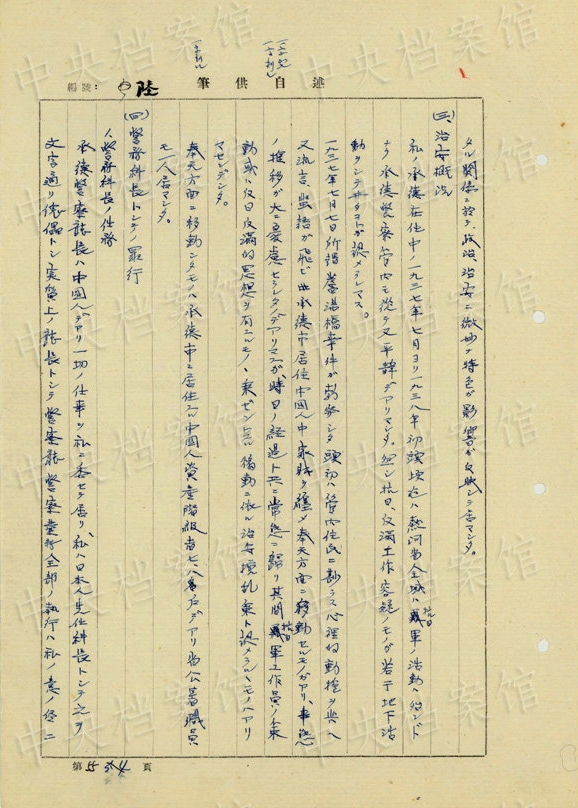 編號:
陸
筆供自述
タル関係ニ於テ、政治、治安ニ微妙ナ特色ガ影響ガ反映シテ居マシタ。
(三)治安概況
私ノ承德在住中ノ一九三七年七月ヨリ一九三八年初頭頃迄ハ熱河省全域ハ抗日軍ノ活動ハ殆ンド
ナク承德警察管内モ從テ又平靜デアリマシタ。但シ抗日、反満工作容疑ノモノガ若干地下活
動シテ
認メラレマス。
一九三七年七月七日所謂蘆溝橋事件ガ勃發シタ頭初ハ管内住民ニ尠ラズ心理的動揺ヲ與ヘ
又流言、蜚語ガ飛ビ承德市居住中國人中家財ヲ纏メ奉天方面ニ移動セルモノガアリ、事態
ノ推移ガ大ニ憂慮セラレタデアリマスガ、時日ノ経過ト共ニ常態ニ歸リ其間抗日軍工作員ノ策
動或ハ反日反満的思想ヲ有スルモノノ乗ゼントスル
動ニ依ル治安攪乱
ト認メラルゝモノハアリ
マセンデシタ。
奉天方面ニ移動シタモノハ承德市ニ居住スル中國人資産階級者七、八名戸デアリ省公署職員
モ一人居マシタ。
(四)警務科長トシテノ罪行
1、警務科長ノ任務
承德警察廳長ハ中國人デアリ一切ノ仕事ヲ私ニ委セテ居リ、私ハ日本人先任科長トシテ之ヲ
文字通リ傀儡トシ実質上ノ廳長トシテ警察廳警察業務全部ノ執行ハ私ノ意ノ儘ニ
第 55 頁
中央档案馆